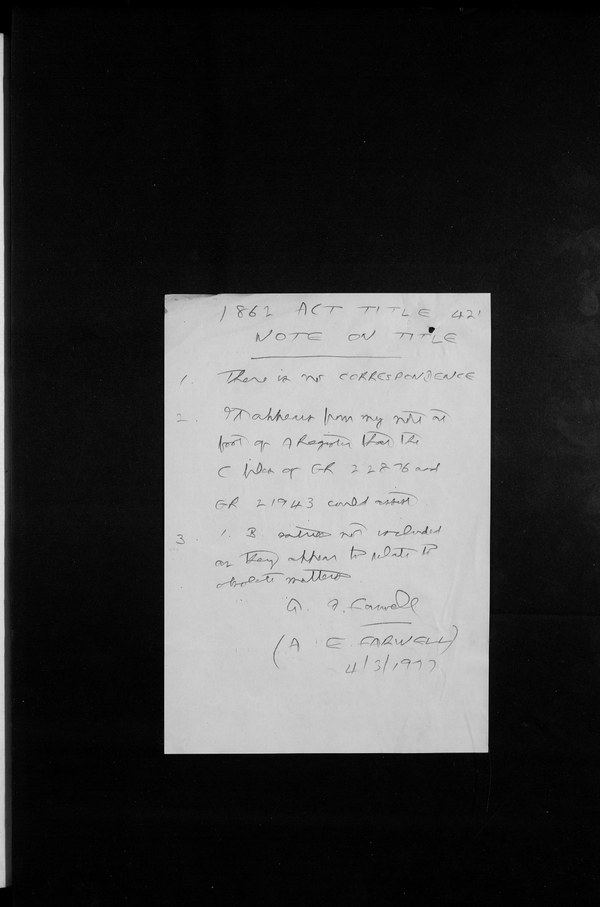 1862 ACT TITLE 421
NOTE ON TITLE
1. There is no CORRESPONDENCE
2. It appears from my note at
foot of A Register that the
C plan of GR 22876 and
GR 21943 could assist
3. 1. B entries not included
as they appear to relate to
obsolete matters
A. E. Farwell
(A E FARWELL)
4/3/1977